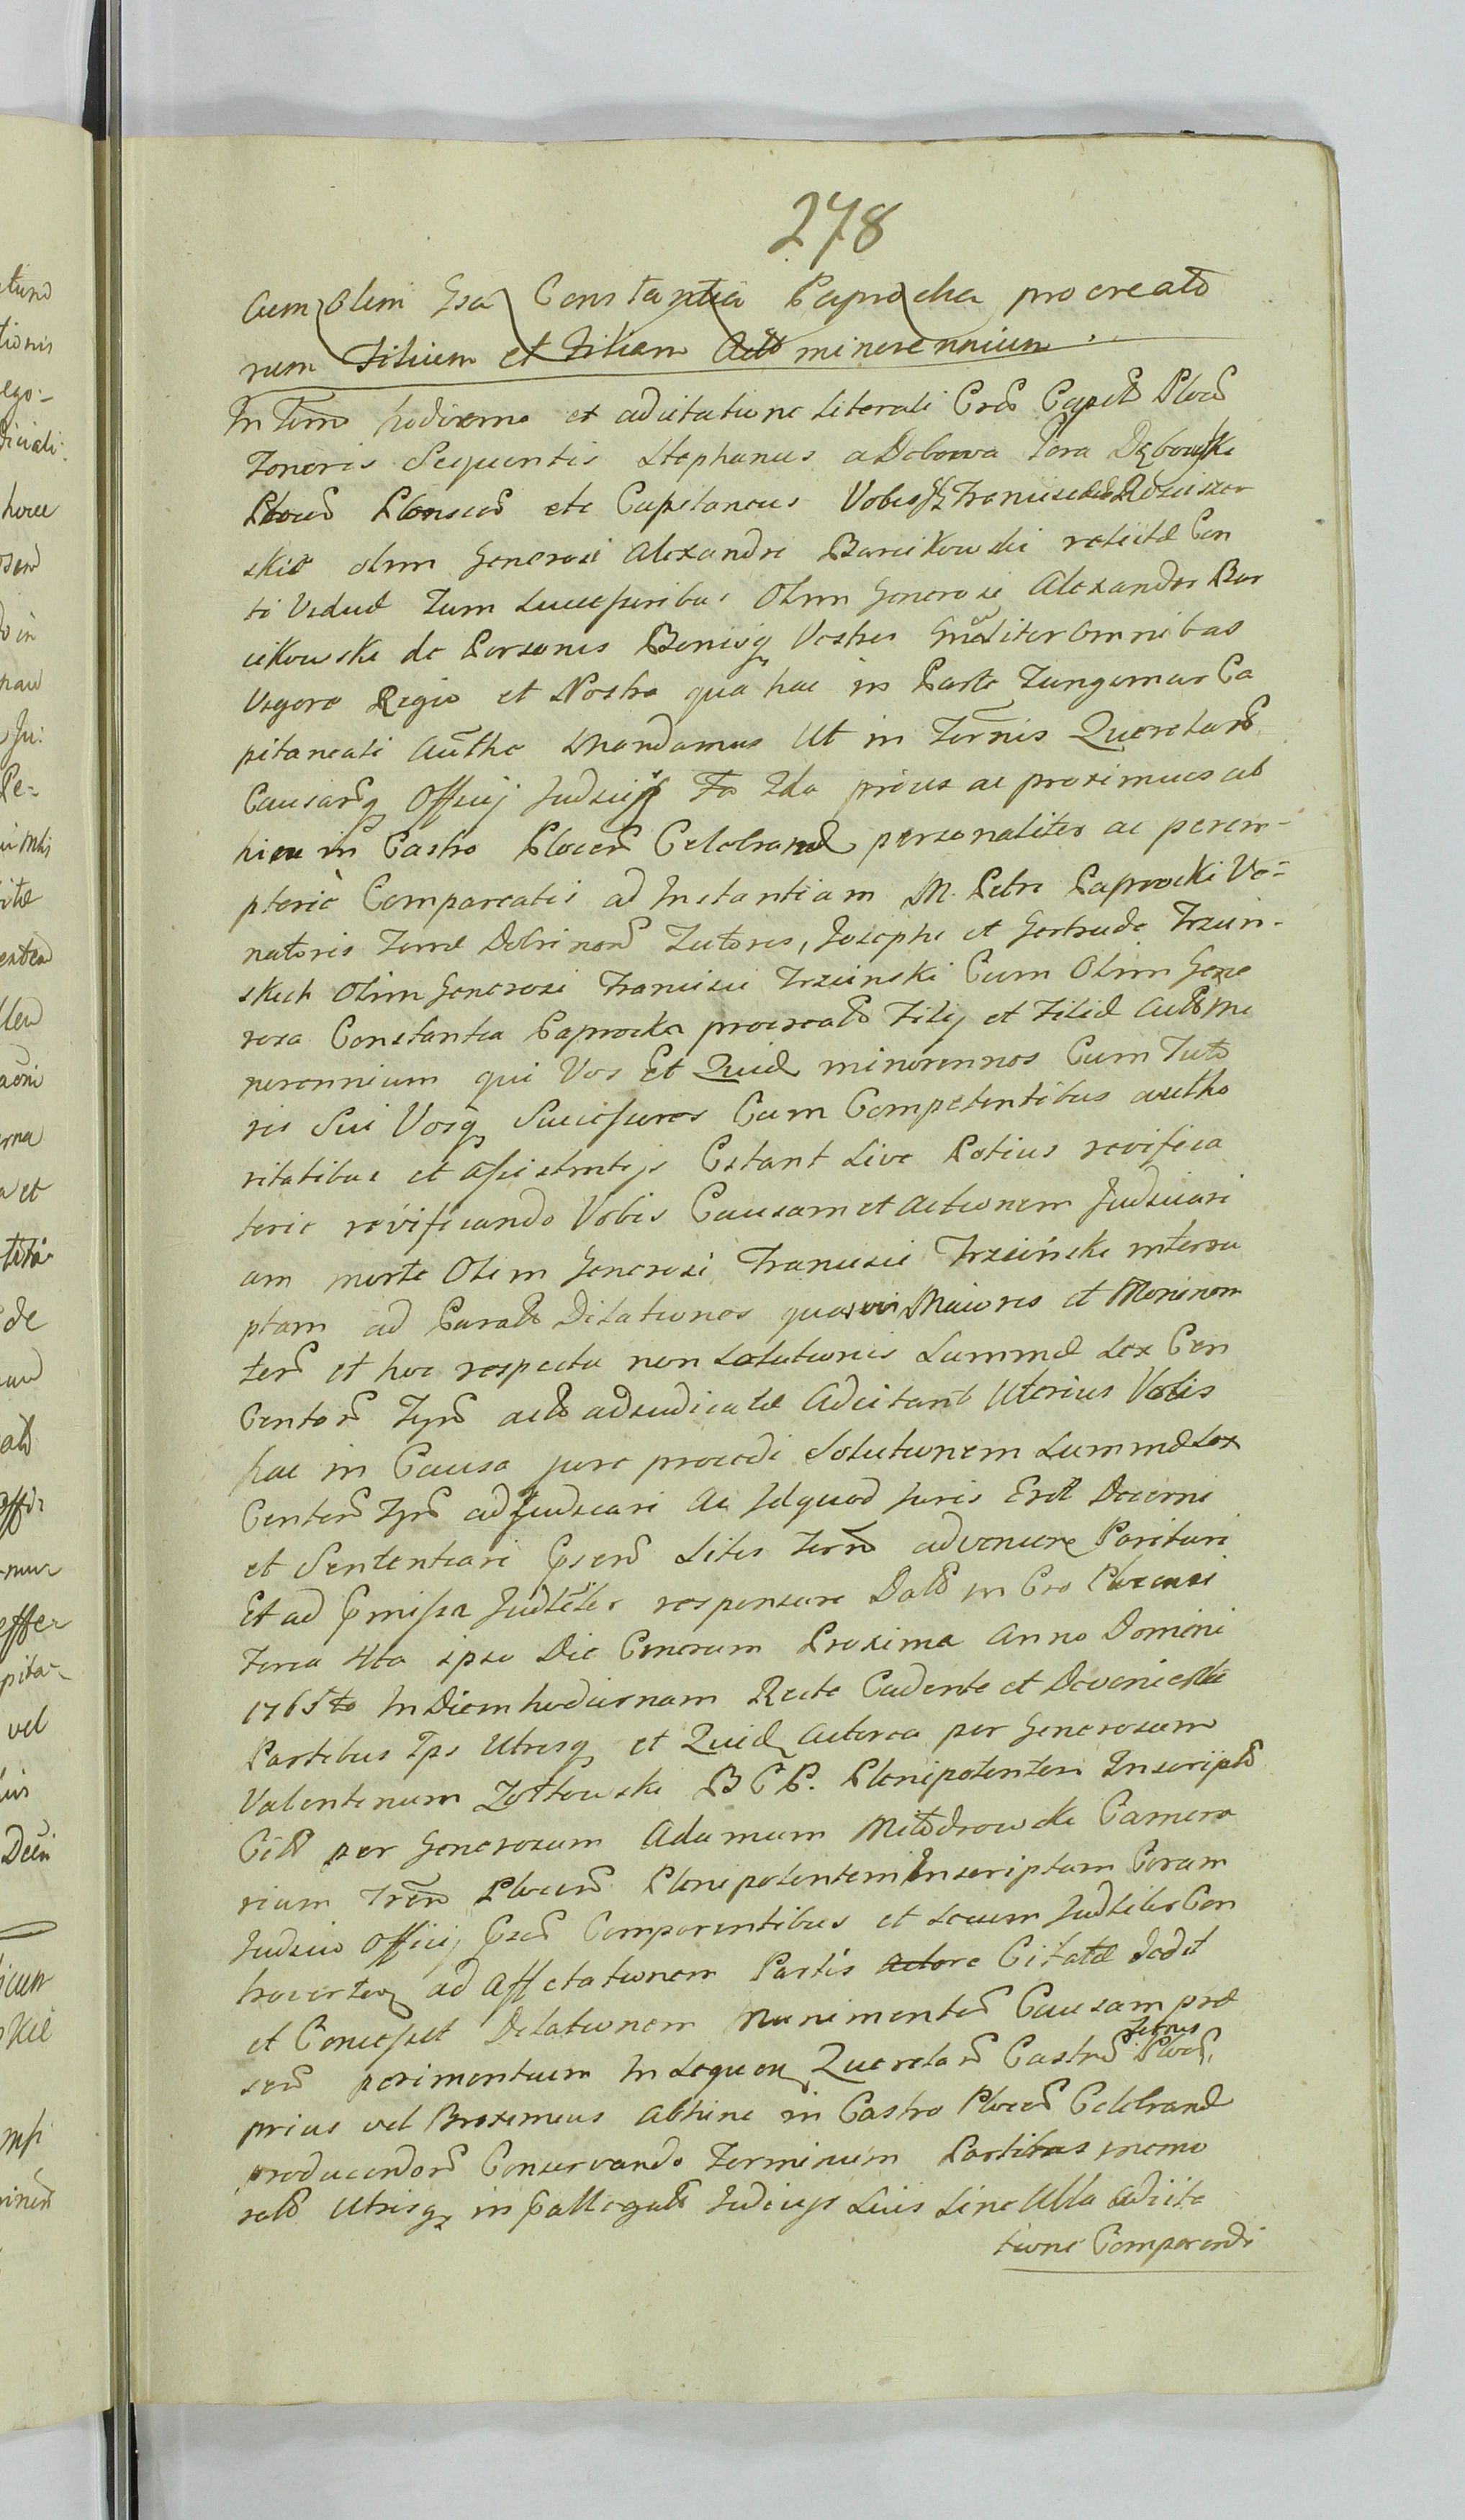 278
Cum Olim Gsa Constantia Paprocka procreato
rum Filium et Filiam Acto minorennium.
In Termo hodierno ex adcitatione literali Cros Capto Ploco
Tenoris Sequentis Stephanus a Debowa Gora Dębowski
Plocen Plonscen etc Capitaneus Vobis Gs Francisca Rosciszew
skie olim Generosi Alexandri Barcikowski relictæ Con
ti Viduæ Tum Successoribus Olim Generosi Alexandri Bar
cikowski de Personis Bonisq Vestris Gnaliter omnibus
Vigore Regio et Nostra qua hac in Parte Fungimur Ca
pitaneali Autthe Mandamus Ut in Termis Querelar
Causarq Officij Judicijq Fa 2da prius ac proximius ab
hinc in Castro Plocen Celebrand personaliter ac perem-
ptorie Compareatis ad Instantiam M. Petri Paprocki Ve-
natoris Terræ Dobrinen Tutoris, Josephi et Gertrude Trzcin-
skich Olim Generosi Francisci Trzcinski Cum Olim Gene
rosa Constantia Paprocka procreato Filij et Filiæ Acto Mi
norennium qui Vos Et Quid minorennos Cum Tuto
ris Sui Vosq Successores Cum Competentibus autho
ritatibus et Assistentijs Citant Sive Potius revifica
torie revificando Vobis Causam et Actionem Judiciari
am morte Olim Generosi Francisci Trzcińcki interru
ptam ad Parato Dilationes quasvis Maiores et Minores
ter et hoc respectu non Solutionis Summæ Sex Cen
Centor Tyn acto adjudicatæ Adcitant Ulterius Vobis
hac in Causa jure procedi Solutionem Summæ Sex
Centor Tyn adjudicari Ac Idquod Juris Erit Decerni
et Sententiari Psen Litis Term advenien Parituri
Et ad Pmissa Judtliter responsure Dato in Cro Plocensi
Feria 4ta ipso Die Cinerum Proxima Anno Domini
1765to In Diem hodiernam Recte Cadente et Deveniente
Partibus Ips Utrisq et Quid Actorea per Generosum
Valentinum Zołtowski B C P. Plenipotentem Inscripto
Cito per Generosum Adamum Miłodrowski Camera
rium Tren Plocen Plenipotentem Inscriptum Coram
Judicio Officij Psen Comparentibus et Secum Judtliter Con
troverten ad Affectationem Partis Actore Citatæ dedit
et Concessit Dilationem Munimentor Causam præ
sen perimentium In Sequen Querelar Castren Ploc
Termis
prius vel Proximius Abhinc in Castro Plocen Celebrand
producendor Conservando Terminum Partibus memo
rato Utrisq in Pallegato Judicijs Suis Sine Ulla Adcita
tione Comparendi